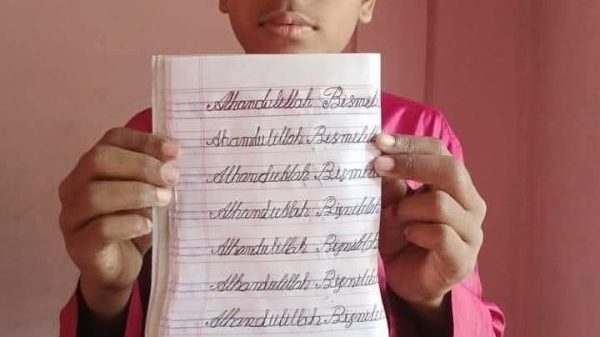 Alhandulillah Bismel
Ahandulillah Besmilela
Alhandulillah Bismila
Alhandulillah Bismilah
Alhandulillah Bismillah
Alhandulillah Bismilah
Alhandulillah Bismilah